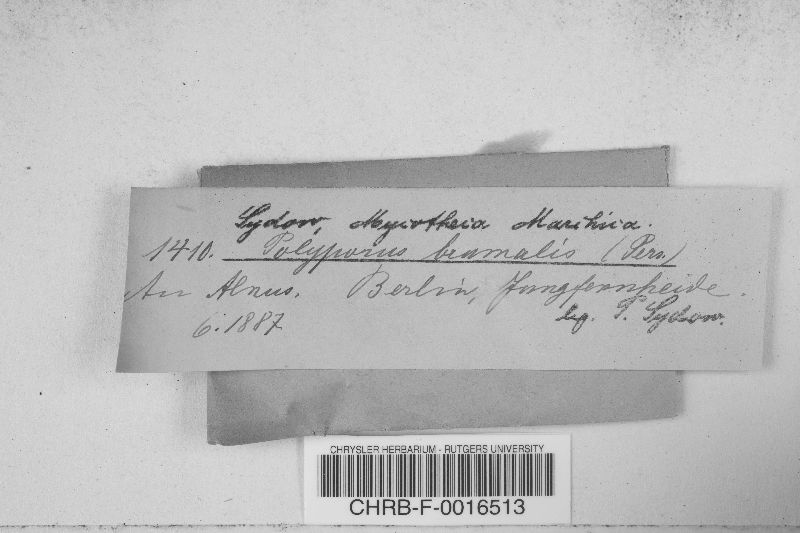 Sydow, Mycotheca Marchica.
1410. Polyporus brumalis (Pers.)
An Alnus. Berlin, Jungfernheide.
6.1887 leg. P. Sydow.
CHRYSLER HERBARIUM - RUTGERS UNIVERSITY
CHRB-F-0016513